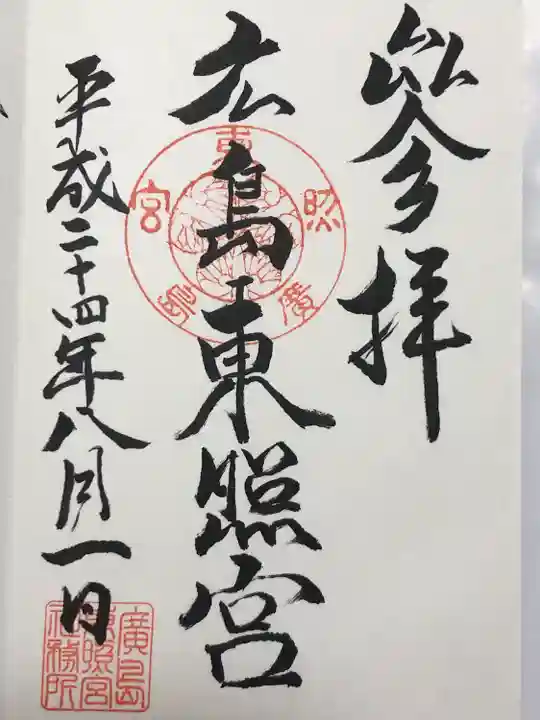 參拝
広島東照宮
平成二十四年八月一日
東照宮
廣島
廣島
東照宮
社務所